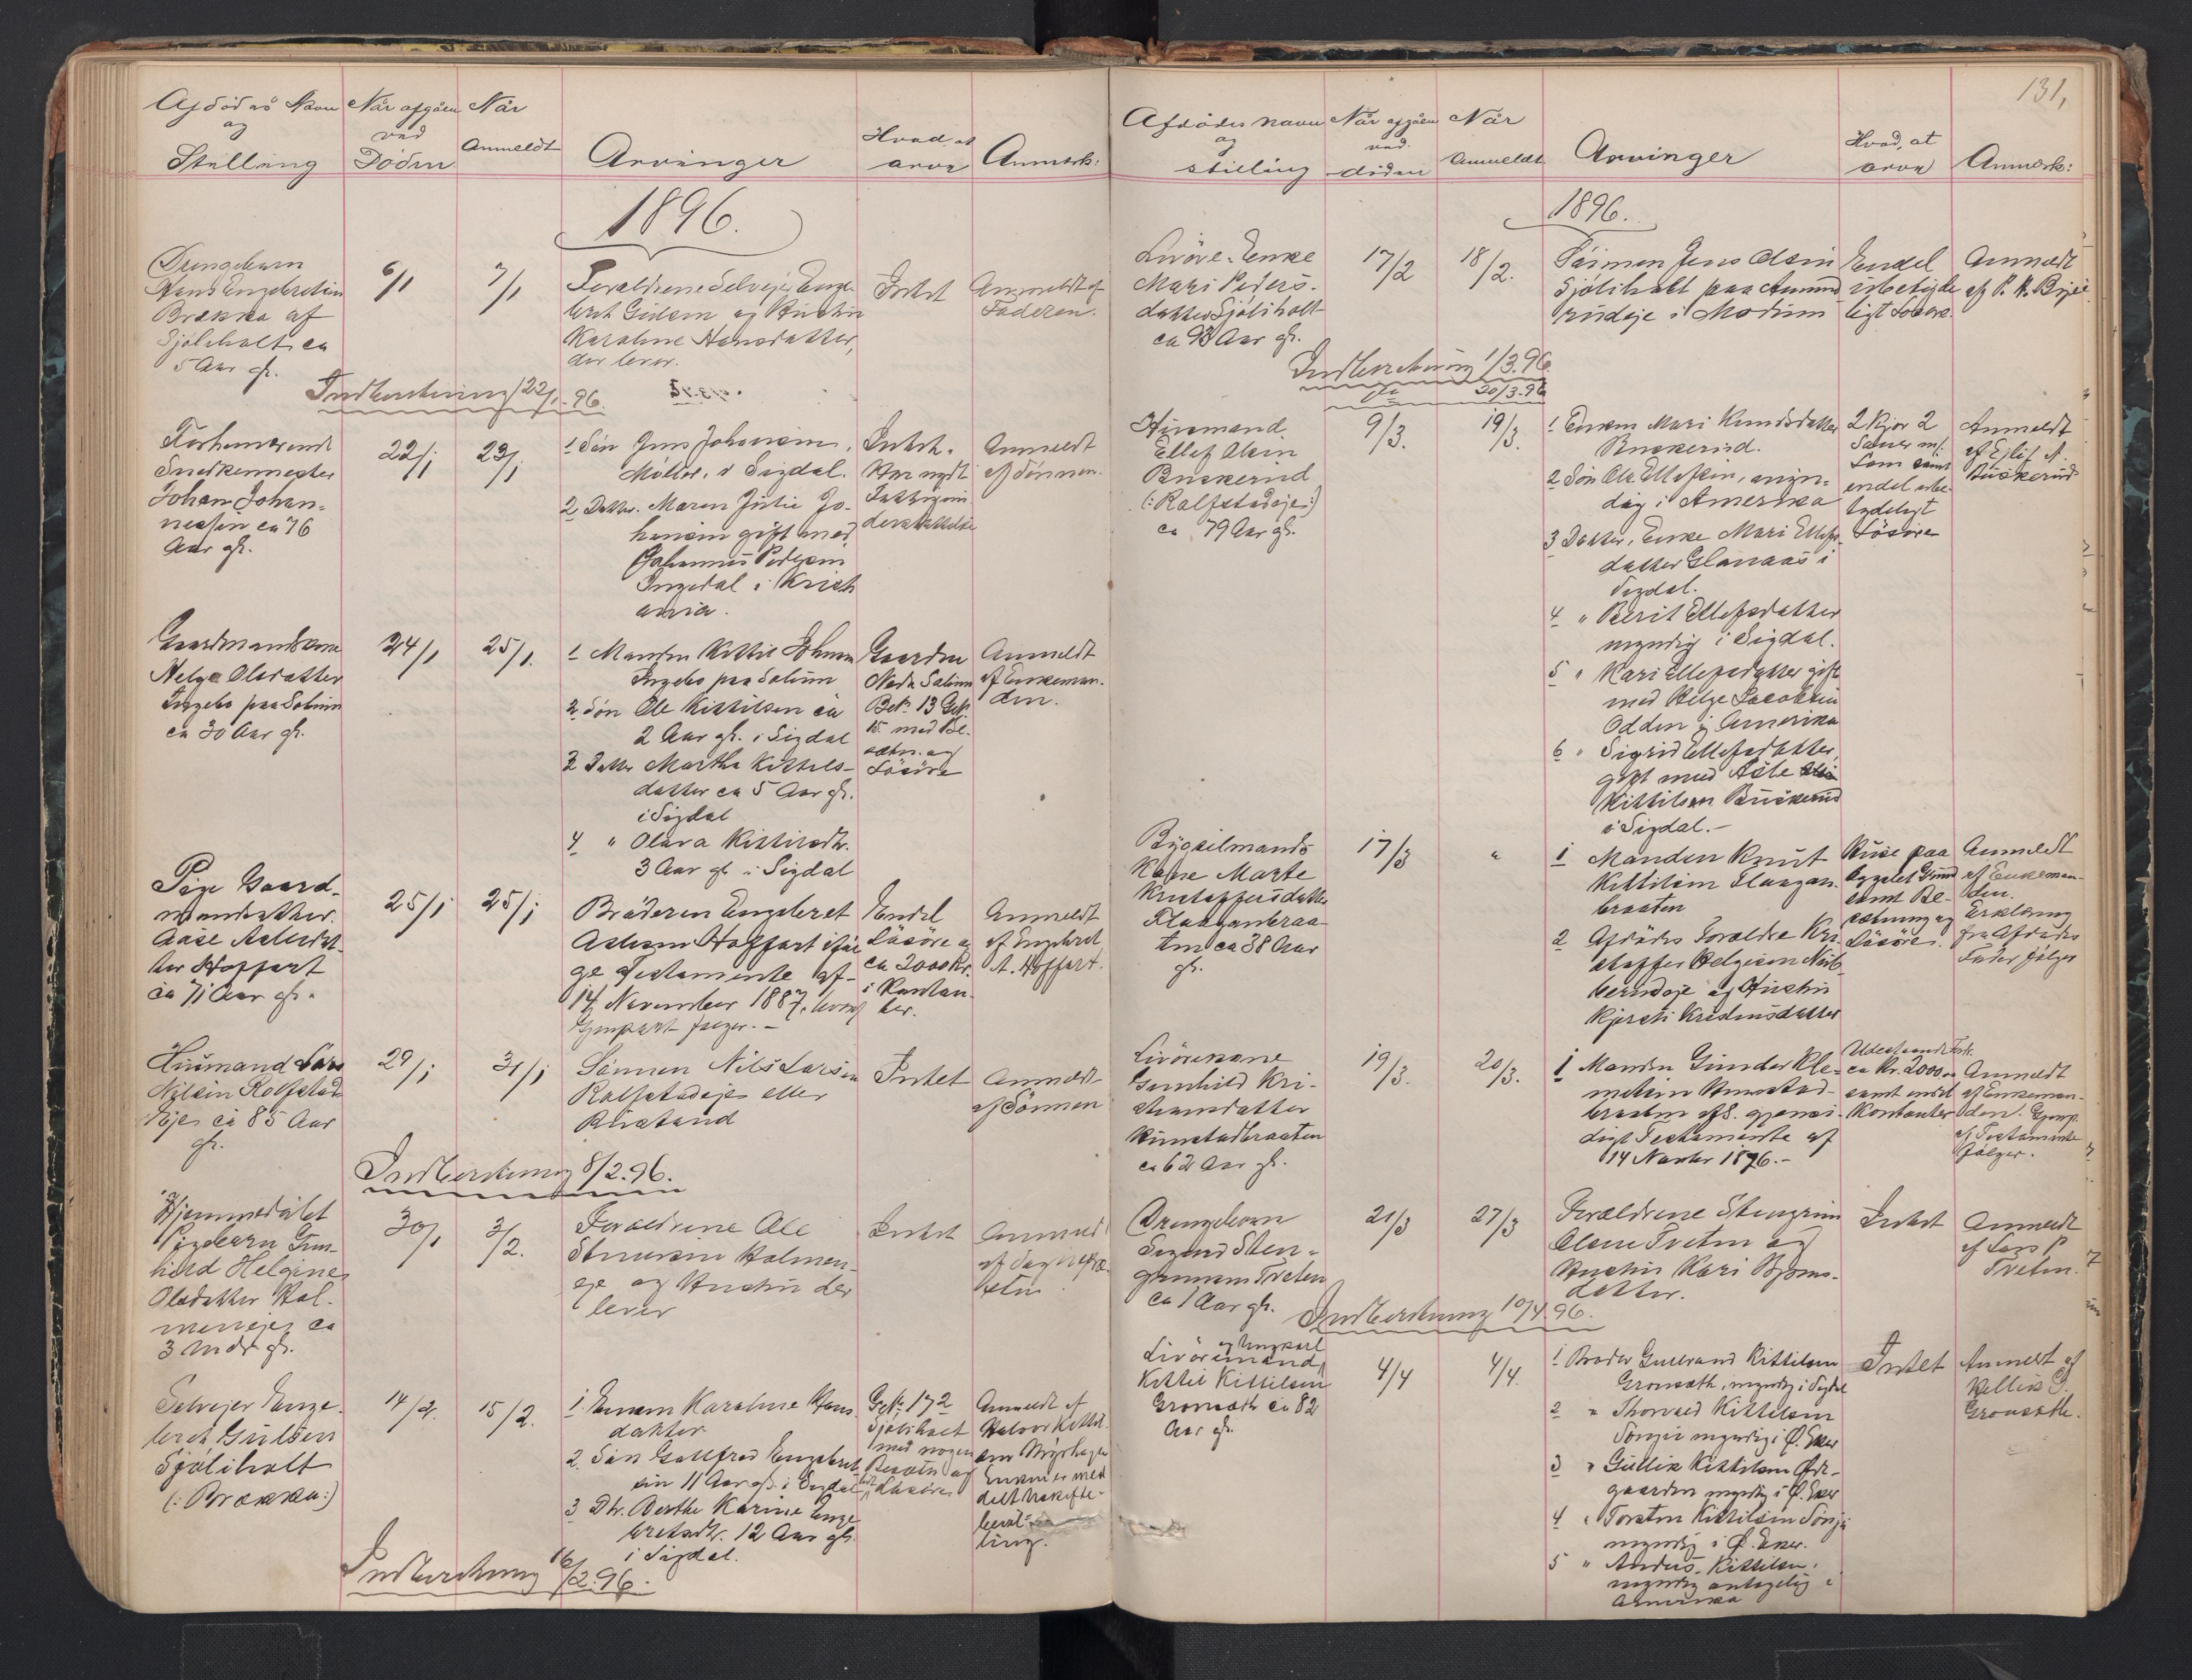 Afdödes Navn
og
Stelling
Når afgåen
ved
Döden
Når
Anmeldt
Arvinger
Hvad, at
arve
Anmerk:
1896.
Drengebarn
Hans Engebretsen
Brækka af
Sjöliholt ca
5 Aar gl.
6/1
7/1
Forældrene Selveier Enge
bret Gulsen og Hustru
Karoline Hansdatter,
der lever.
Intet
Anmeldt af
Faderen.
Indberetning 22/1-96.
Forhenværende
Snedkermester
Johan Johan-
nessen ca 76
Aar gl.
22/1
23/1
1 Sön Jens Johansen,
Möller, i Sigdal.
2 Datter. Maren Julie Jo-
hansen gift med
Johannes Pedersen
Ingedal i Kristi
ania.
Intet.
Har nydt
Fattigun-
derstöttelse
Anmeldt
af Sönnen.
Gaardmandskone
Helga Olsdatter
Ingebo paa Solum
ca 30 Aar gl.
24/1
25/1.
1 Manden Kittil Johnsen
Ingebo paa Solum
2 Sön Ole Kittilsen ca
2 Aar gl. i Sigdal
3 Datter Marthe Kittils-
datter ca 5 Aar gl.
i Sigdal
4 " Olava Kittilsdtr.
3 Aar gl. i Sigdal
Gaarden
Nedre Solum
Bek. 13 G.No
15 med Be-
sætn. og
Lösöre
Anmeldt
af Enkeman-
den.
Pige Gaard-
mandsdatter
Aase Aslesdat-
ter Hoffart
ca 71 Aar gl.
25/1
25/1
Broderen Engebret
Aslesen Hoffart iföl-
ge Testamente af
14 November 1887, hvoraf
Gjenpart fölger. -
Endel
Lösöre og
ca 2000 Kr.
i Kontan-
ter.
Anmeldt
af Engebret
A. Hoffart.
Husmand Lars
Nilsen Rolfstad-
Eje ca 85 Aar
gl.
29/1
31/1
Sönnen Nils Larsen
Rolfstadeje eller
Ristand
Intet
Anmeldt
af Sönnen
Indberetning 8/2.96.
Hjemmedöbt
Pigebarn Gun-
hild Helgine
Olsdatter Hol-
meneje ca
3 Mdr gl.
30/1
3/2.
Forældrene Ole
Holmen-
eje og Hustru der
lever
Intet
Anmeldt
af
Selveier Enge-
bret Gulsen
Sjöliholt
(: Brækka:)
14/2.
15/2.
1 Enken Karoline Hans-
datter
2. Sön Gullfred Engebret-
sen 11 Aar gl. i Sigdal
3 Dtr. Berthe Karine Enge
bretsdtr. 12 Aar gl.
i Sigdal.
G.No. 172
Sjöliholt
med nogen
Besætn og
Lösöre
Anmeldt af
Halvor Kittil-
sen Myrhagen
Enken er med
delt Uskifte-
bevil-
ling.
Indberetning 16/2.96.
131,
Afdödes navn
og
stilling
Når afgåen
ved
döden
Når
Anmeldt
Arvinger
Hvad, at
arve
Anmærk:
1896.
Livöre-Enke
Mari Peders-
datter Sjöliholt
ca 93 Aar gl.
17/2
18/2.
Sönnen Jens Olsen
Sjöliholt paa Amund
rudeje i Modum
Endel
ubetyde
ligt Lösöre.
Anmeldt
af P. K. Bye
Indberetning 1/3.96
do 20/3.96
Husmand
Ellef Olsen
Buskerud
(: Rolfstadeje:)
ca 79 Aar gl.
9/3.
19/3.
1 Enken Mari Knudsdatter
Buskerud.
2 Sön Ole Ellefsen, myn-
dig i Amerika
3 Datter, Enke Mari Ellefs-
datter Glanaas i
Sigdal.
4 " Berit Ellefsdatter
myndig i Sigdal.
5 " Kari Ellefsdatter gift
med Helge Jacobsen
Odden i Amerika
6 " Sigrid Ellefsdatter,
gift med Asle
Kittilsen Buskerud
i Sigdal. -
2 Kjör 2
Sauer m/
Lam samt
endel ube-
tydeligt
Lösöre
Anmeldt
af Eilif A.
Buskerud
Bygselmands
Kone Marte
Kristoffersdatter
Flaaganbraa-
ten ca 38 Aar
gl.
17/3
"
1 Manden Knut
Kittilsen Flaagan-
braaten
2 Afdödes Forældre Kri-
stoffer Helgesen Nub-
berudeje og Hustru
Kjersti Kristensdatter
Huse paa
bygslet Grund
samt Be-
sætning og
Lösöre.
Anmeldt
af Enkeman-
den.
Erklæring
fra Afdödes
Fader fölger
Livörekone
Gunhild Kri-
stiansdatter
Runstadbraaten
ca 62 Aar gl.
19/3.
20/3.
1 Manden Gunder Kle-
metsen Runstad-
braaten eft. gjensi-
digt Testamente af
14 Novbr 1876. -
Udestaaende Fordr.
ca Kr. 2000,00
samt endel
Kontanter
Anmeldt
af Enkeman-
den. Gjenp.
af Testamente
fölger.
Drengebarn
Svend Sten-
grimsen Tveten
ca 1 Aar gl.
21/3
27/3
Forældrene Stengrim
Olsen Tveten og
Hustru Kari Bjöns-
datter.
Intet
Anmeldt
af Lars P.
Tveten.
Indberetning 10/4.96.
og Ungkarl
Livöremand
Kittil Kittilsen
Gronsæth ca 82
Aar gl.
4/4
4/4.
1 Broder Gulbrand Kittilsen
Gronsæth, myndig i Sigdal
2 " Thorvald Kittilsen
Sönju myndig i Ø. Eker
3 " Gullik Kittilsen Öde-
gaarden myndig i Ø. Eker
4 " Torsten Kittilsen Sönju
myndig i Ø. Eker.
5 " Anders Kittilsen,
myndig antagelig i
Amerika
Intet
Anmeldt af
Kittil G.
Gronsæth.